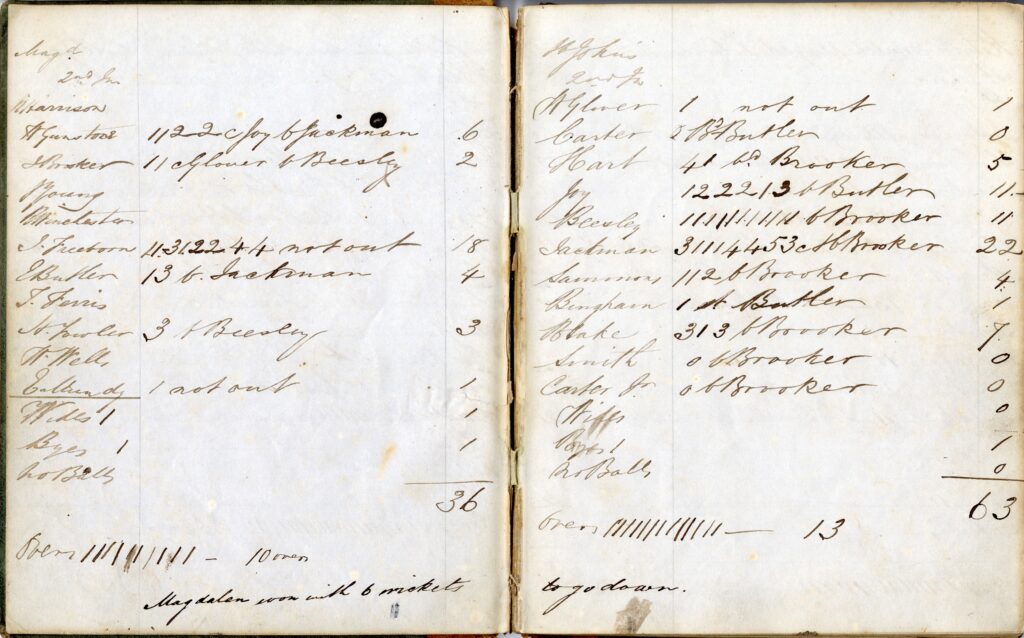 Magd
2nd In
Harrison
W Gunstone 1122 c Joy b Jackman 6
J Brooker 11 c Glover b Beesley 2
Young
Winchester
J. Freeborn 11.3.122 4 4 not out 18
E Butler 13 b. Jackman 4
T. Ferris
3 b Beesley 3
W. Wells
1 not out 1
Wides 1 1
Byes 1 1
No Balls
36
Overs 1111111111 — 10 overs
Magdalen won with 6 wickets
St Johns
2nd In
W Glover 1 not out 1
Carter Bd Butler 0
Hart 41 bd Brooker 5
Joy 122213 b Butler 11
Beesley 11111111111 b Brooker 11
Jackman 31114453 c & b Brooker 22
Sammons 112 b Brooker 4
Bingham 1 st Butler 1
Blake 313 b Brooker 7
Smith 0 b Brooker 0
Carter Jr 0 b Brooker 0
Wides 0
Byes 1 1
No Balls 0
63
Overs 1111111111111 — 13
to go down.